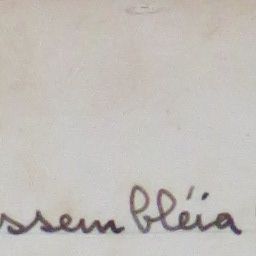 ssembléia